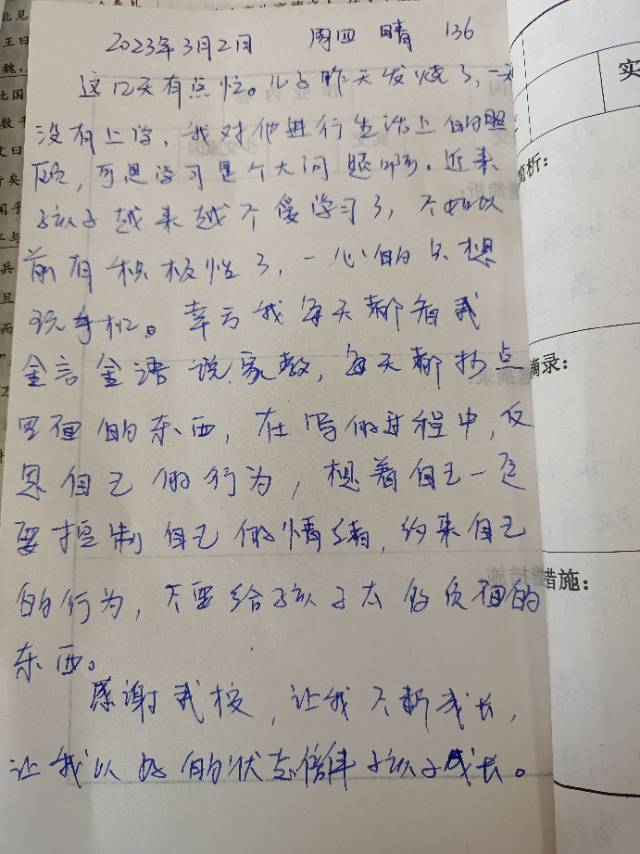 2023年3月2日 周四 晴 136
这几天有点忙。儿子昨天发烧了,一天
没有上学,我对他进行生活上的照
顾,可是学习是个大问题啊。近来
孩子越来越不爱学习了,不如以
前有积极性了,一心的只想
玩手机。幸亏我每天都看我
金言金语说家教,每天都抄点
里面的东西,在写的过程中,反
思自己的行为,想着自己一定
要控制自己的情绪,约束自己
的行为,不要给孩子太多负面的
东西。
感谢我校,让我不断成长,
让我以好的状态陪伴孩子成长。
实
摘录:
措施: